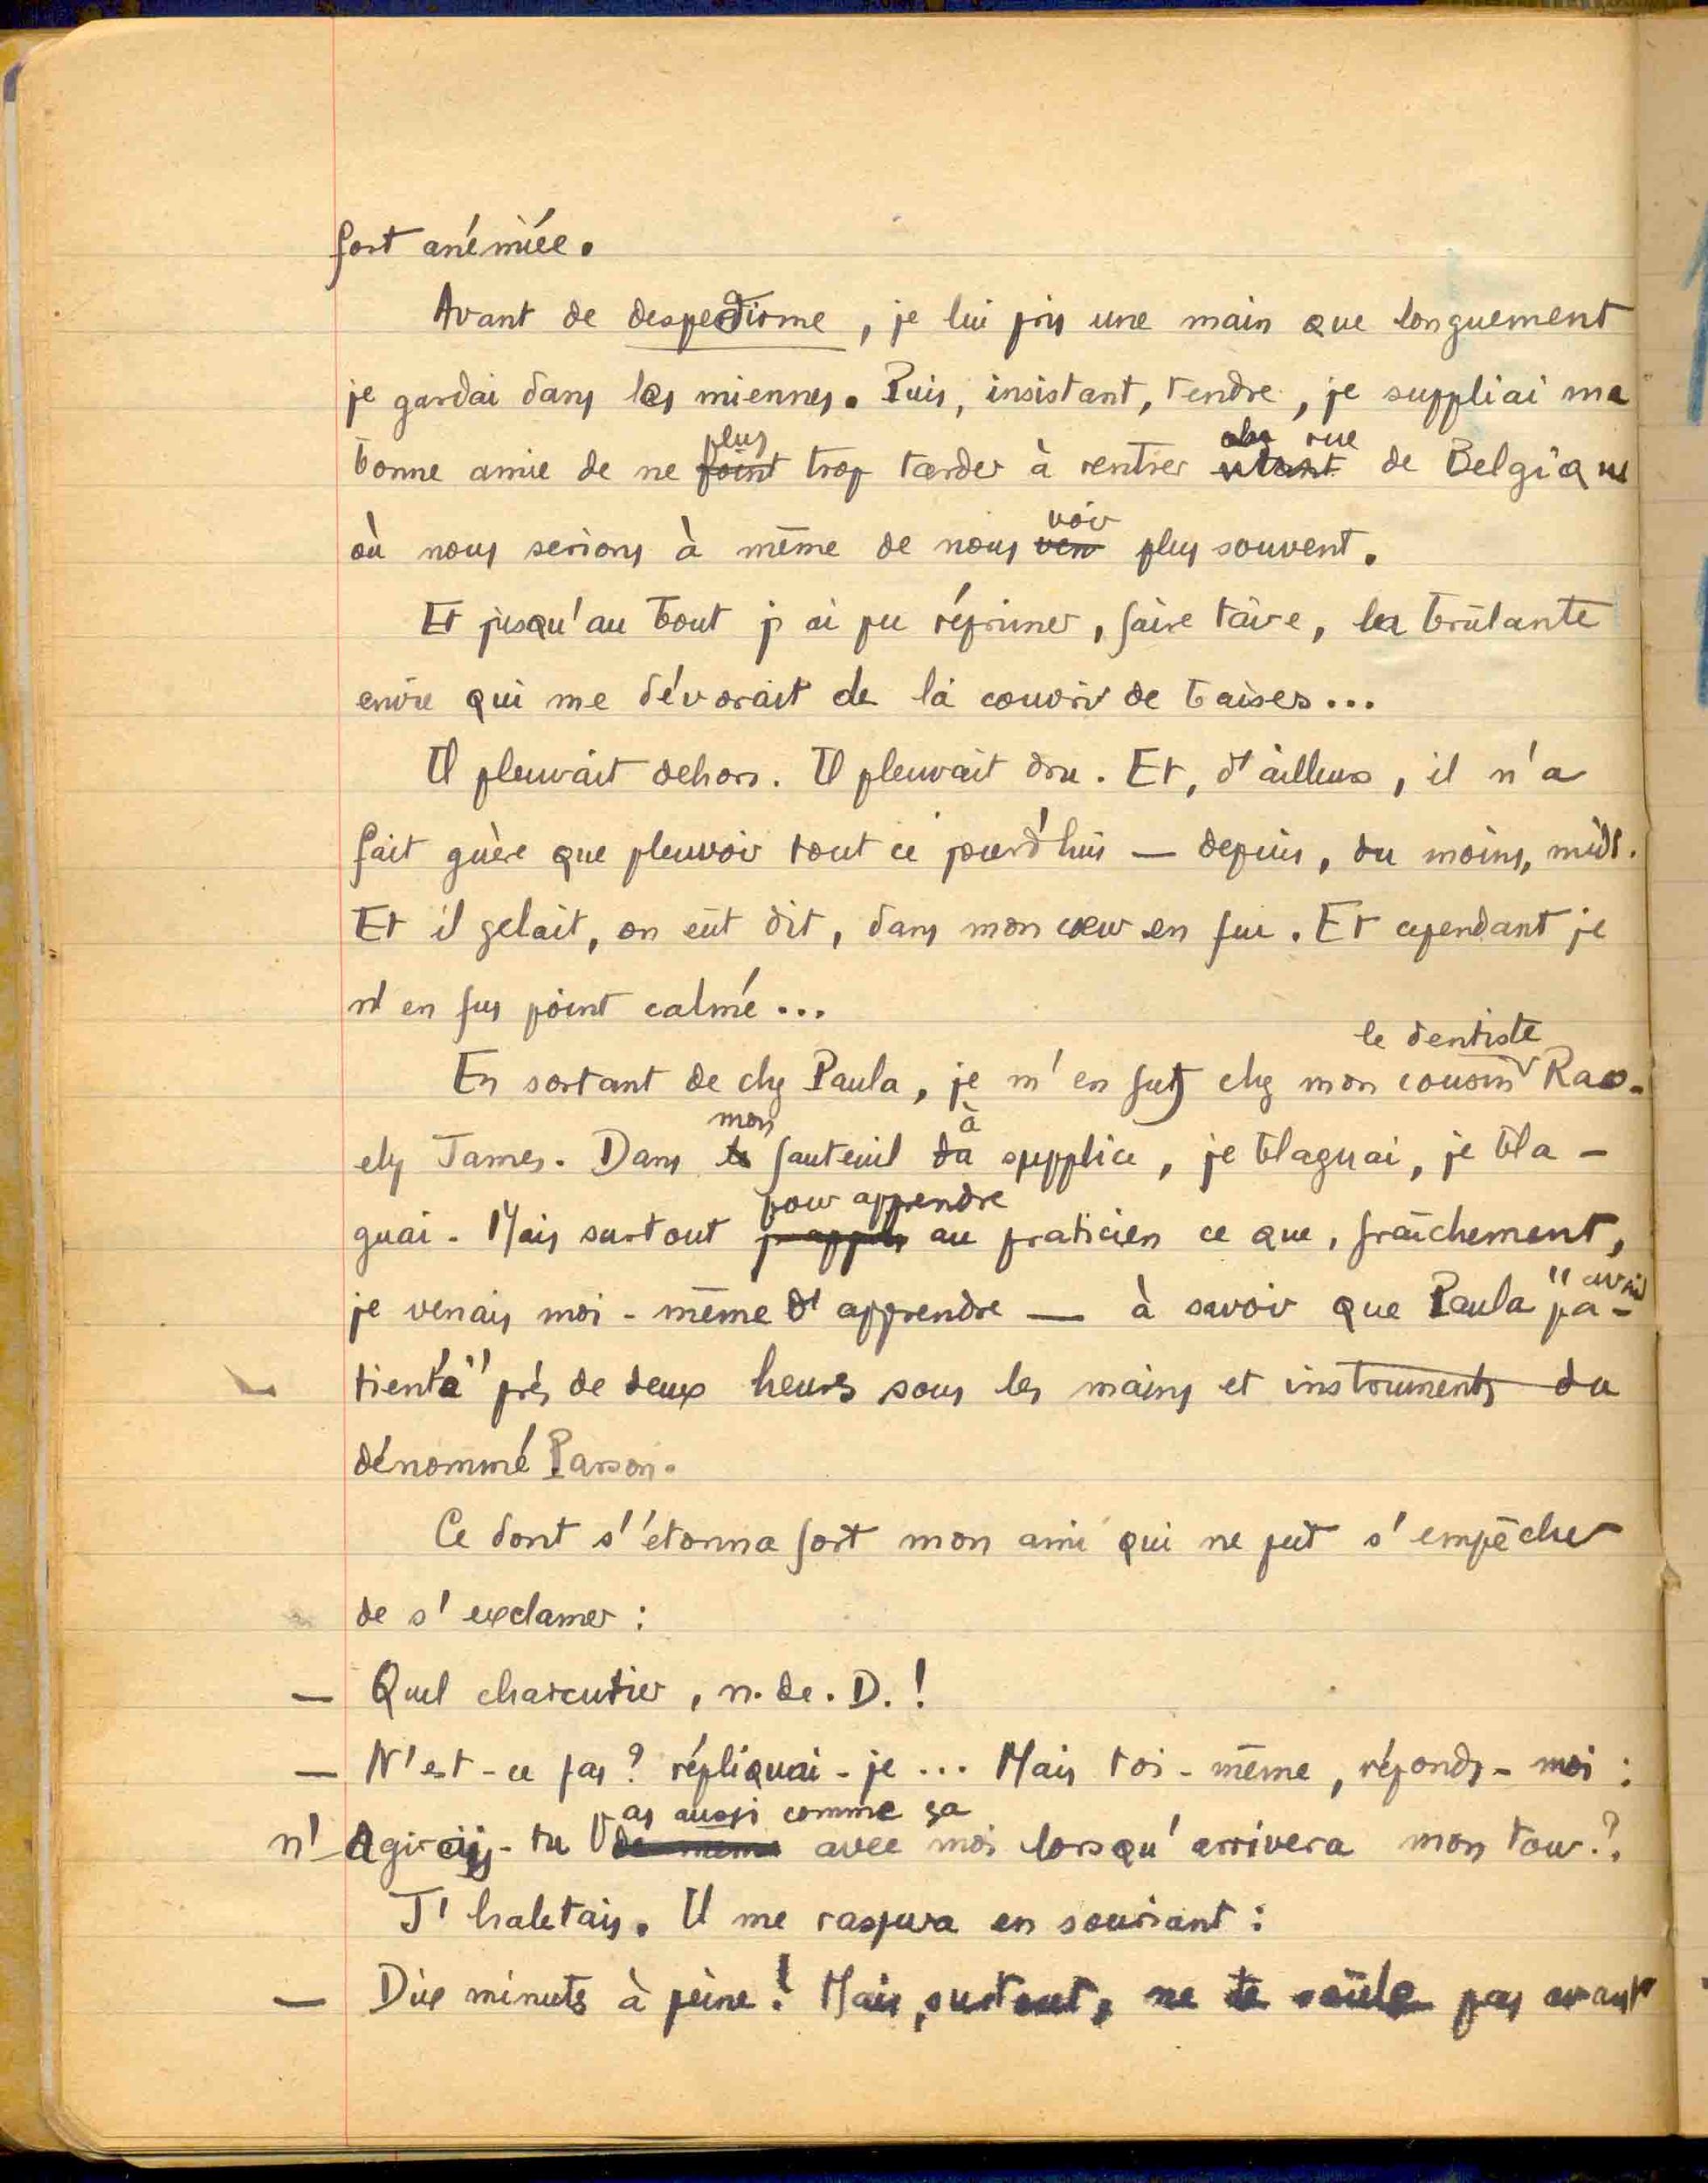 fort anémiée.
Avant de despedirme, je lui pris une main que longuement
je gardai dans les miennes. Puis, insistant, tendre, je suppliai ma
plus rue
bonne amie de ne point trop tarder à rentrer de Belgique
voir
où nous serions à même de nous plus souvent.
Et jusqu'au bout j'ai pu réprimer, faire taire, la brûlante
envie qui me dévorait de la couvrir de baisers...
Il pleuvait dehors. Il pleuvait dru. Et, d'ailleurs, il n'a
fait guère que pleuvoir tout ce jourd'hui — depuis, du moins, midi.
Et il gelait, on eût dit, dans mon cœur en feu. Et cependant je
n'en fus point calmé...
le dentiste
En sortant de chez Paula, je m'en fus chez mon cousin Rao-
mon à
ely James. Dans le fauteuil da supplice, je blaguai, je bla-
pour apprendre
guai. Mais surtout au praticien ce que, fraîchement,
je venais moi-même d'apprendre — à savoir que Paula "avait pa-
tienté" près de deux heures sous les mains et instruments du
dénommé Parson.
Ce dont s'étonna fort mon ami qui ne put s'empêcher
de s'exclamer :
— Quel charcutier, n. de. D. !
— N'est-ce pas ? répliquai-je... Mais toi-même, réponds-moi :
as aussi comme ça
n'agirais-tu de même avec moi lorsqu'arrivera mon tour ?
J'haletais. Il me rassura en souriant :
— Dix minutes à peine ! Mais, surtout, ne te saoûle pas avant